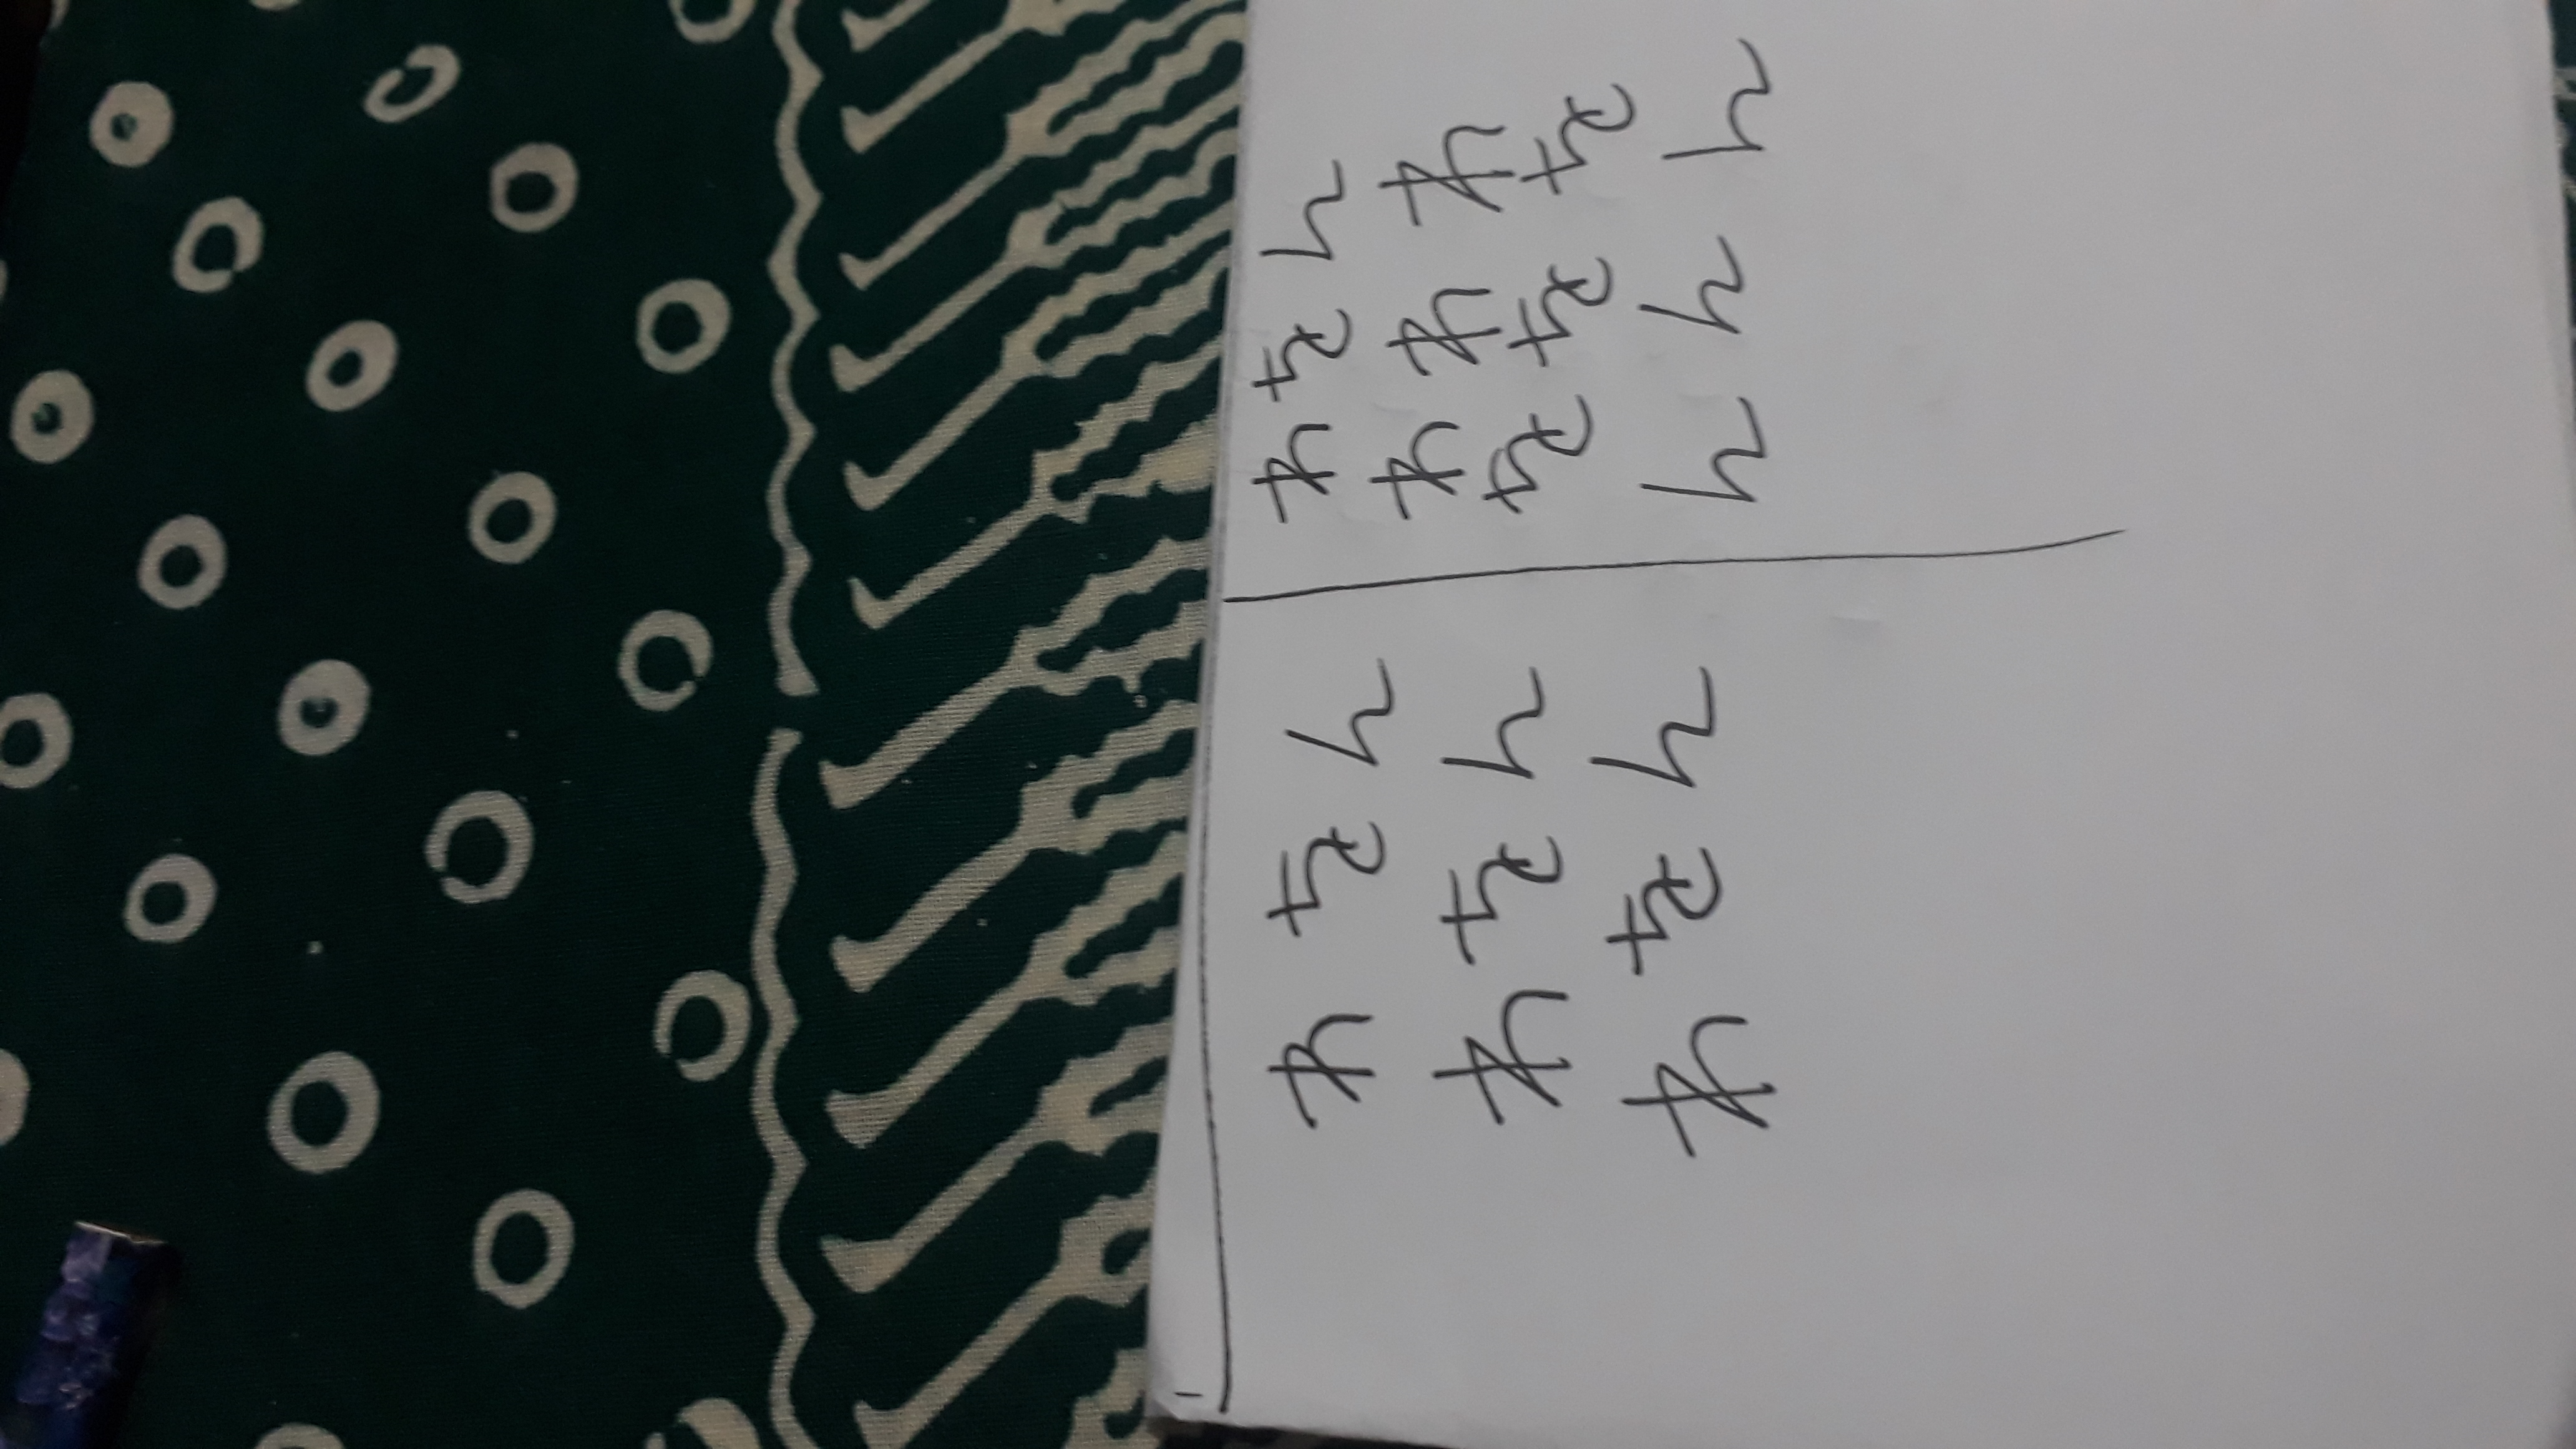 わ を ん
わ を ん
わ を ん
わ を ん
わ わ わ
を を を
ん ん ん